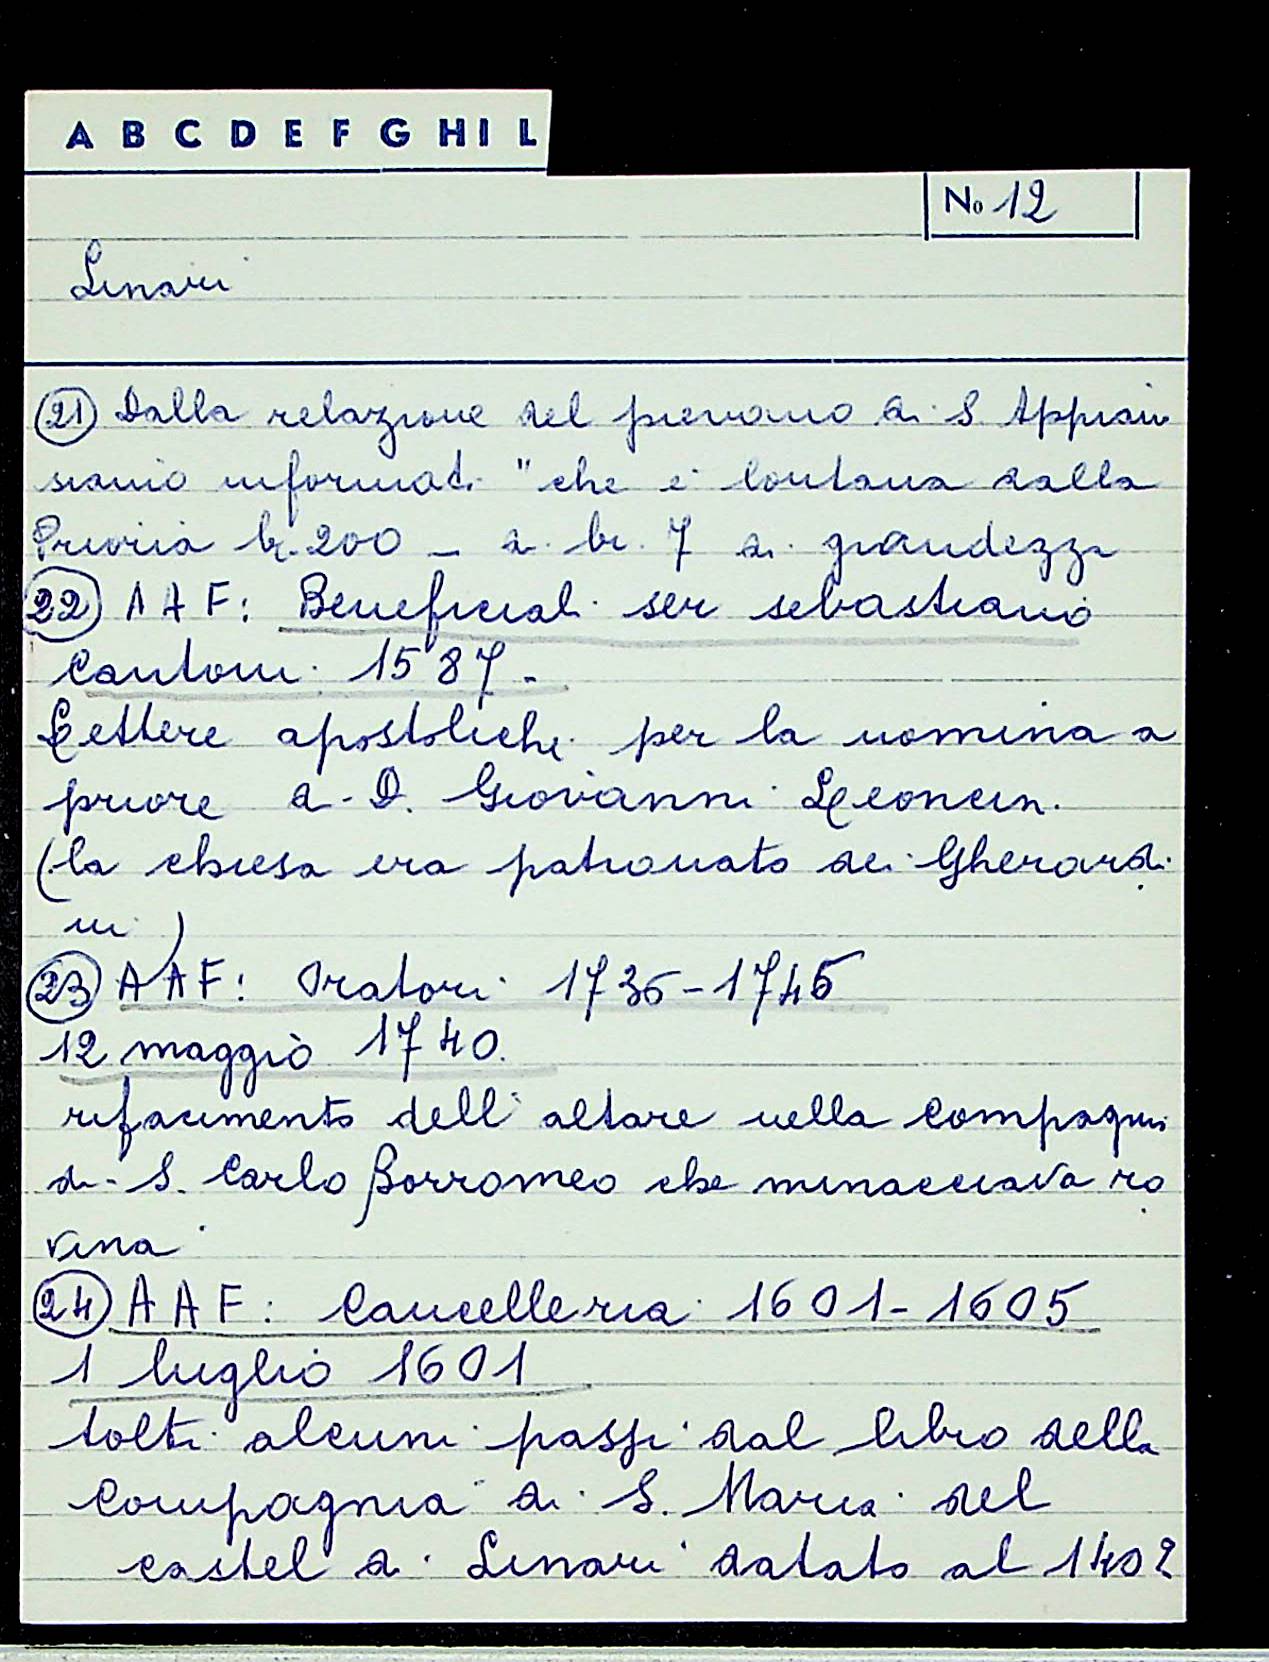 A B C D E F G H I L
No 12
Linari
21) Dalla relazione del pievano di S. Appiano
siamo informati "che è lontana dalla
Prioria br. 200 – di br. 7 di grandezza
22) AAF: Beneficiali ser sebastiano
Cantoni 1587 -
Lettere apostoliche per la nomina a
priore di D. Giovanni Leoncin.
(la chiesa era patronato dei Gherardi
ni)
23) AAF: Oratori 1736-1746
12 maggio 1740.
rifacimento dell'altare nella Compagnia
di S. Carlo Borromeo che minacciava ro
vina
24) AAF: Cancelleria 1601-1605
1 luglio 1601
tolti alcuni passi dal libro della
Compagnia di S. Maria del
castel di Linari datato al 1402